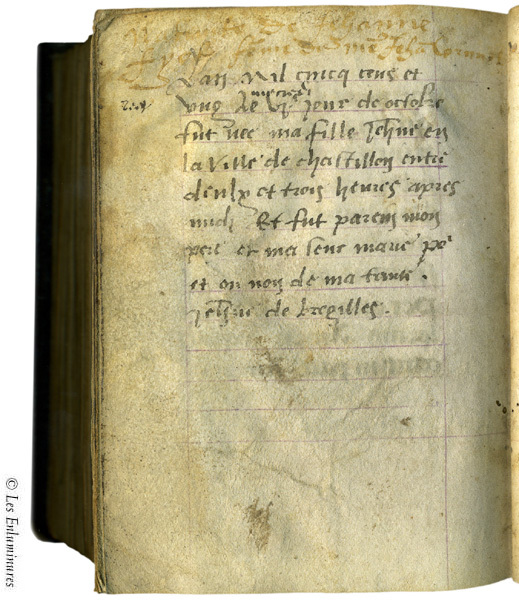 De Jehanne
femme du
Lan Mil cincq cens et
1501
ung le vj^e mercredi jour de octobre
fut nee ma fille Jehne en
la ville de chastillon entre
deulx et trois heures apres
midj Et fut parein mon
pere et ma seur marie po^r
et on nom de ma tante
Jehne de bregilles.
© Les Enluminures